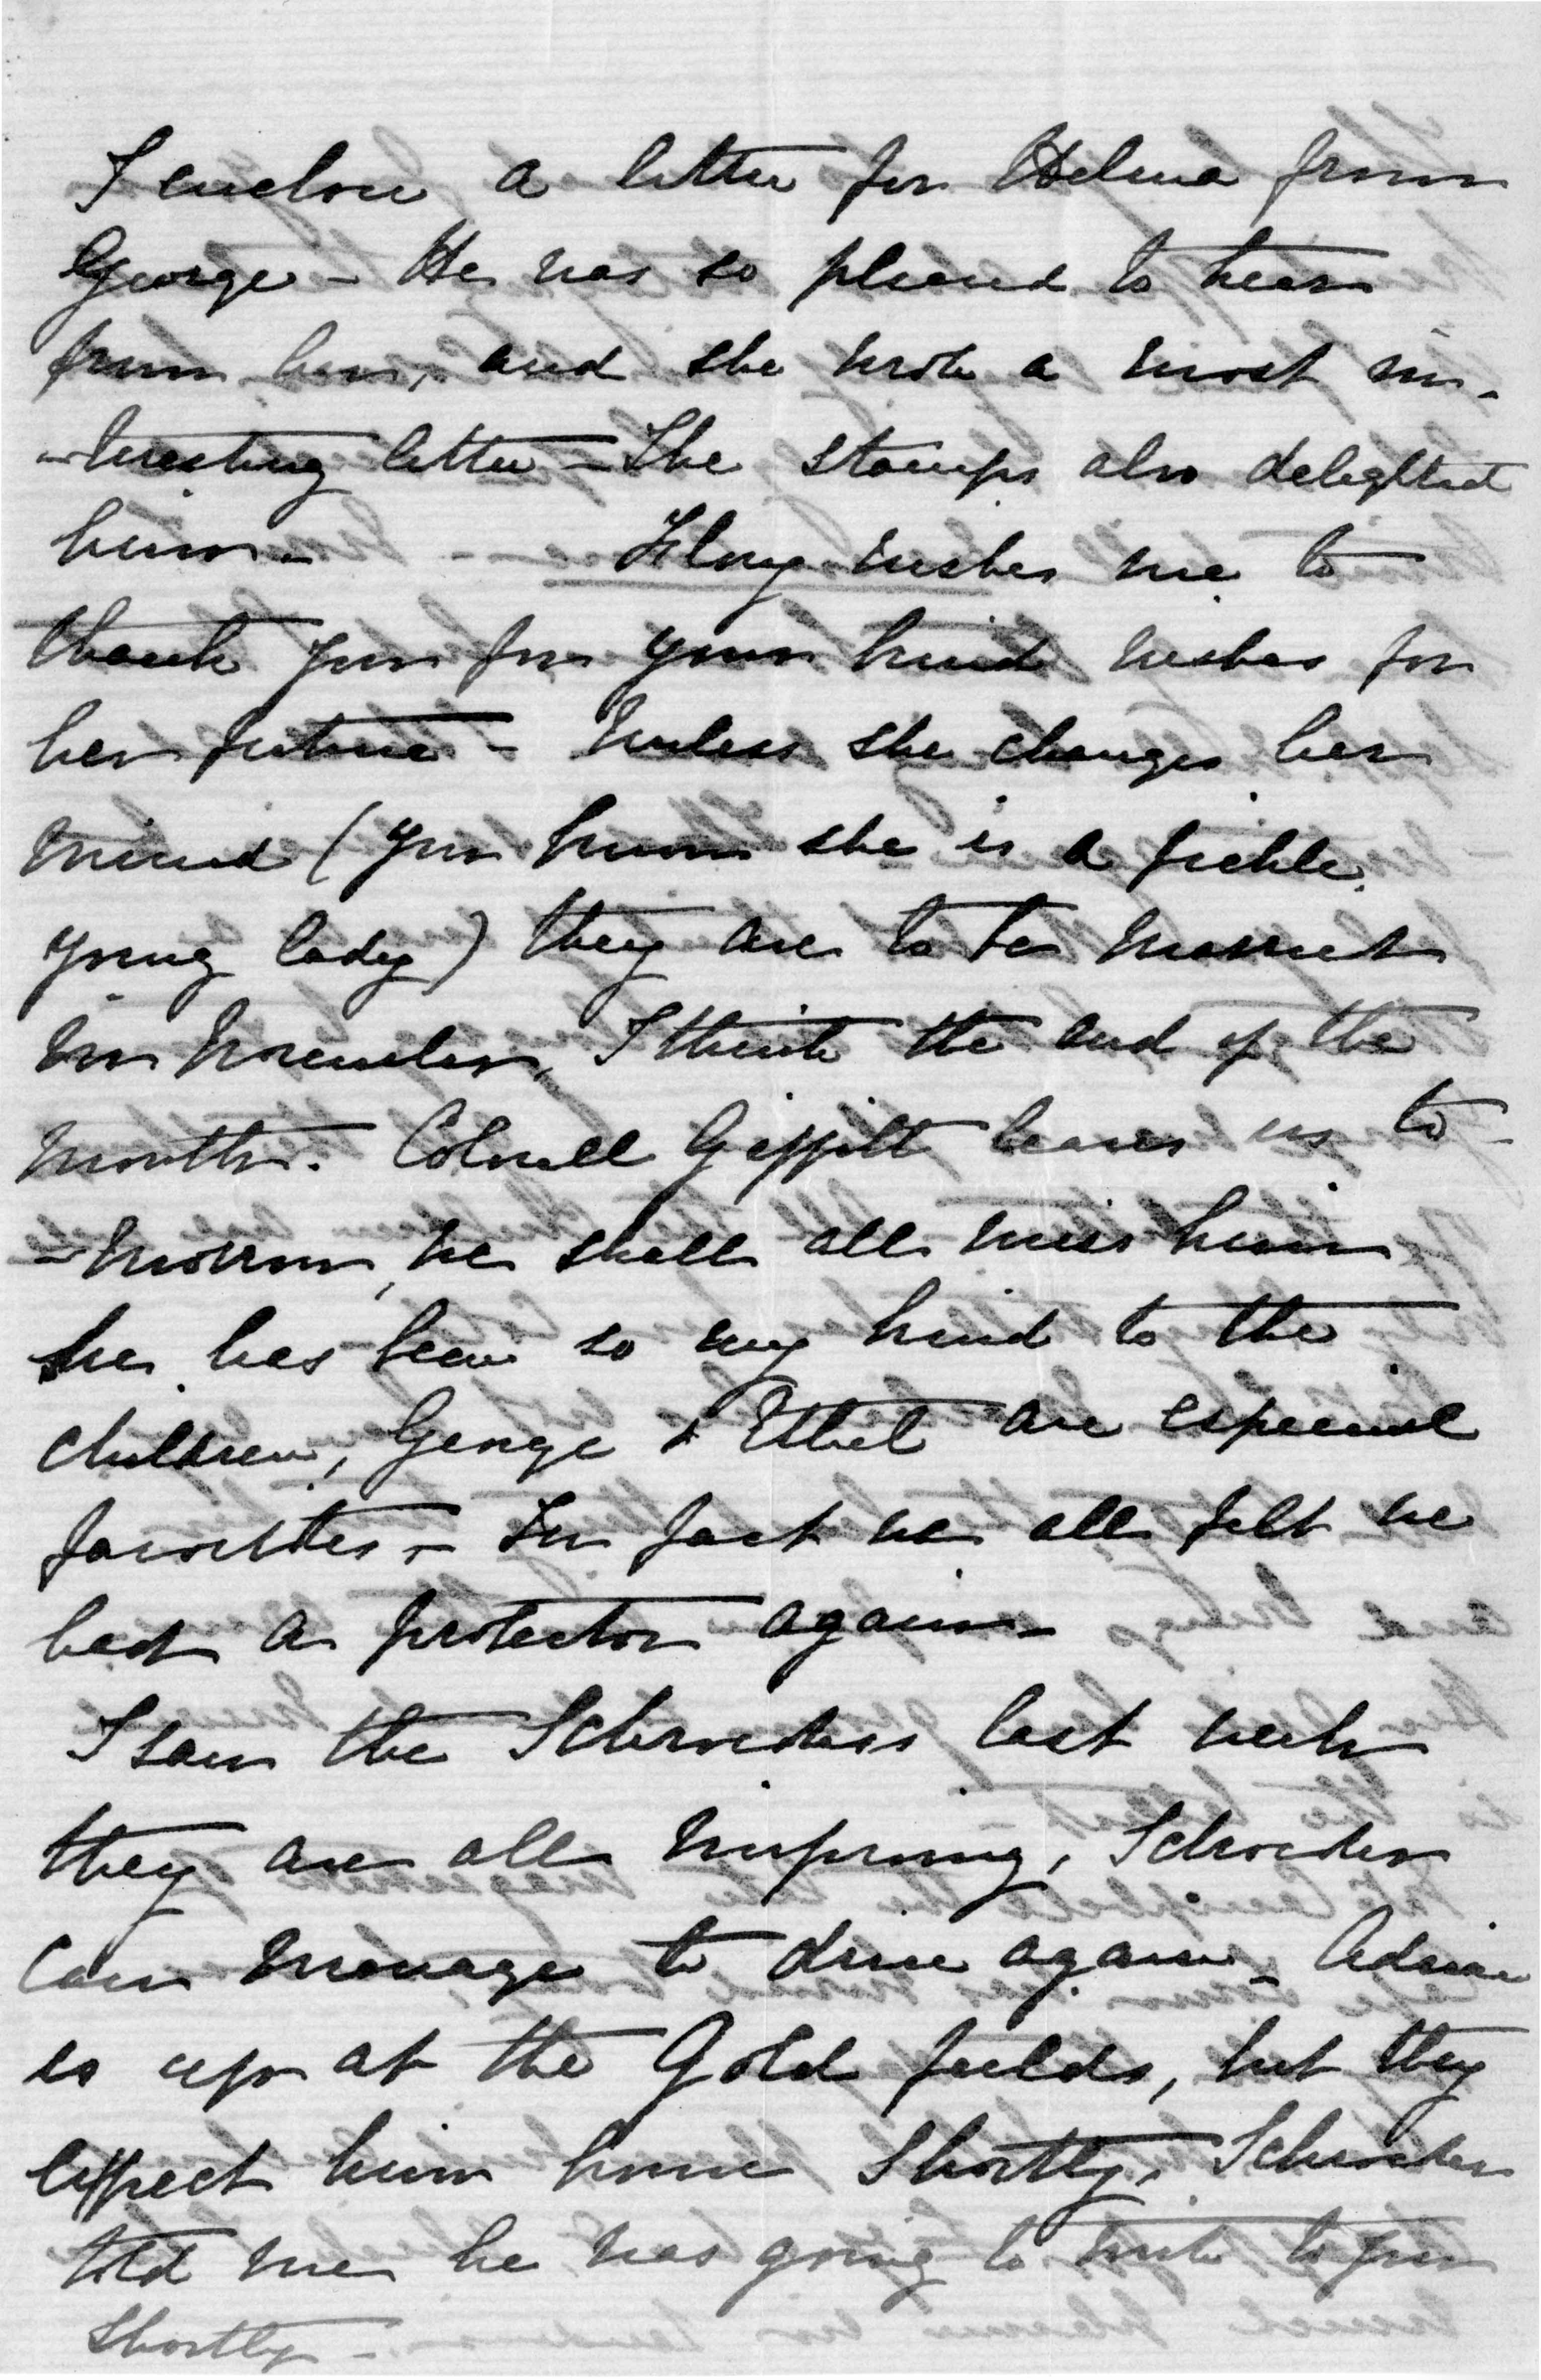 I enclose a letter for Helma from
George - He was so pleased to hear
from her, and she wrote a most in-
-teresting letter - The stamps also delighted
him - - Flory wishes me to
thank you for your kind wishes for
her future - Unless she changes her
mind (you know she is a fickle
young lady) they are to be married
in November, I think the end of the
month. Colonell leaves us to-
-morrow, we shall all miss him
he has been so very kind to the
children, George & Ethel are especial
favorites - In fact we all felt we
had a protector again -
I saw the Schroeders last week
they are all improving, Schroeder
can manage to drive again -
is up at the Gold fields, but they
expect him home shortly, Schroeder
told me he was going to write to you
shortly -